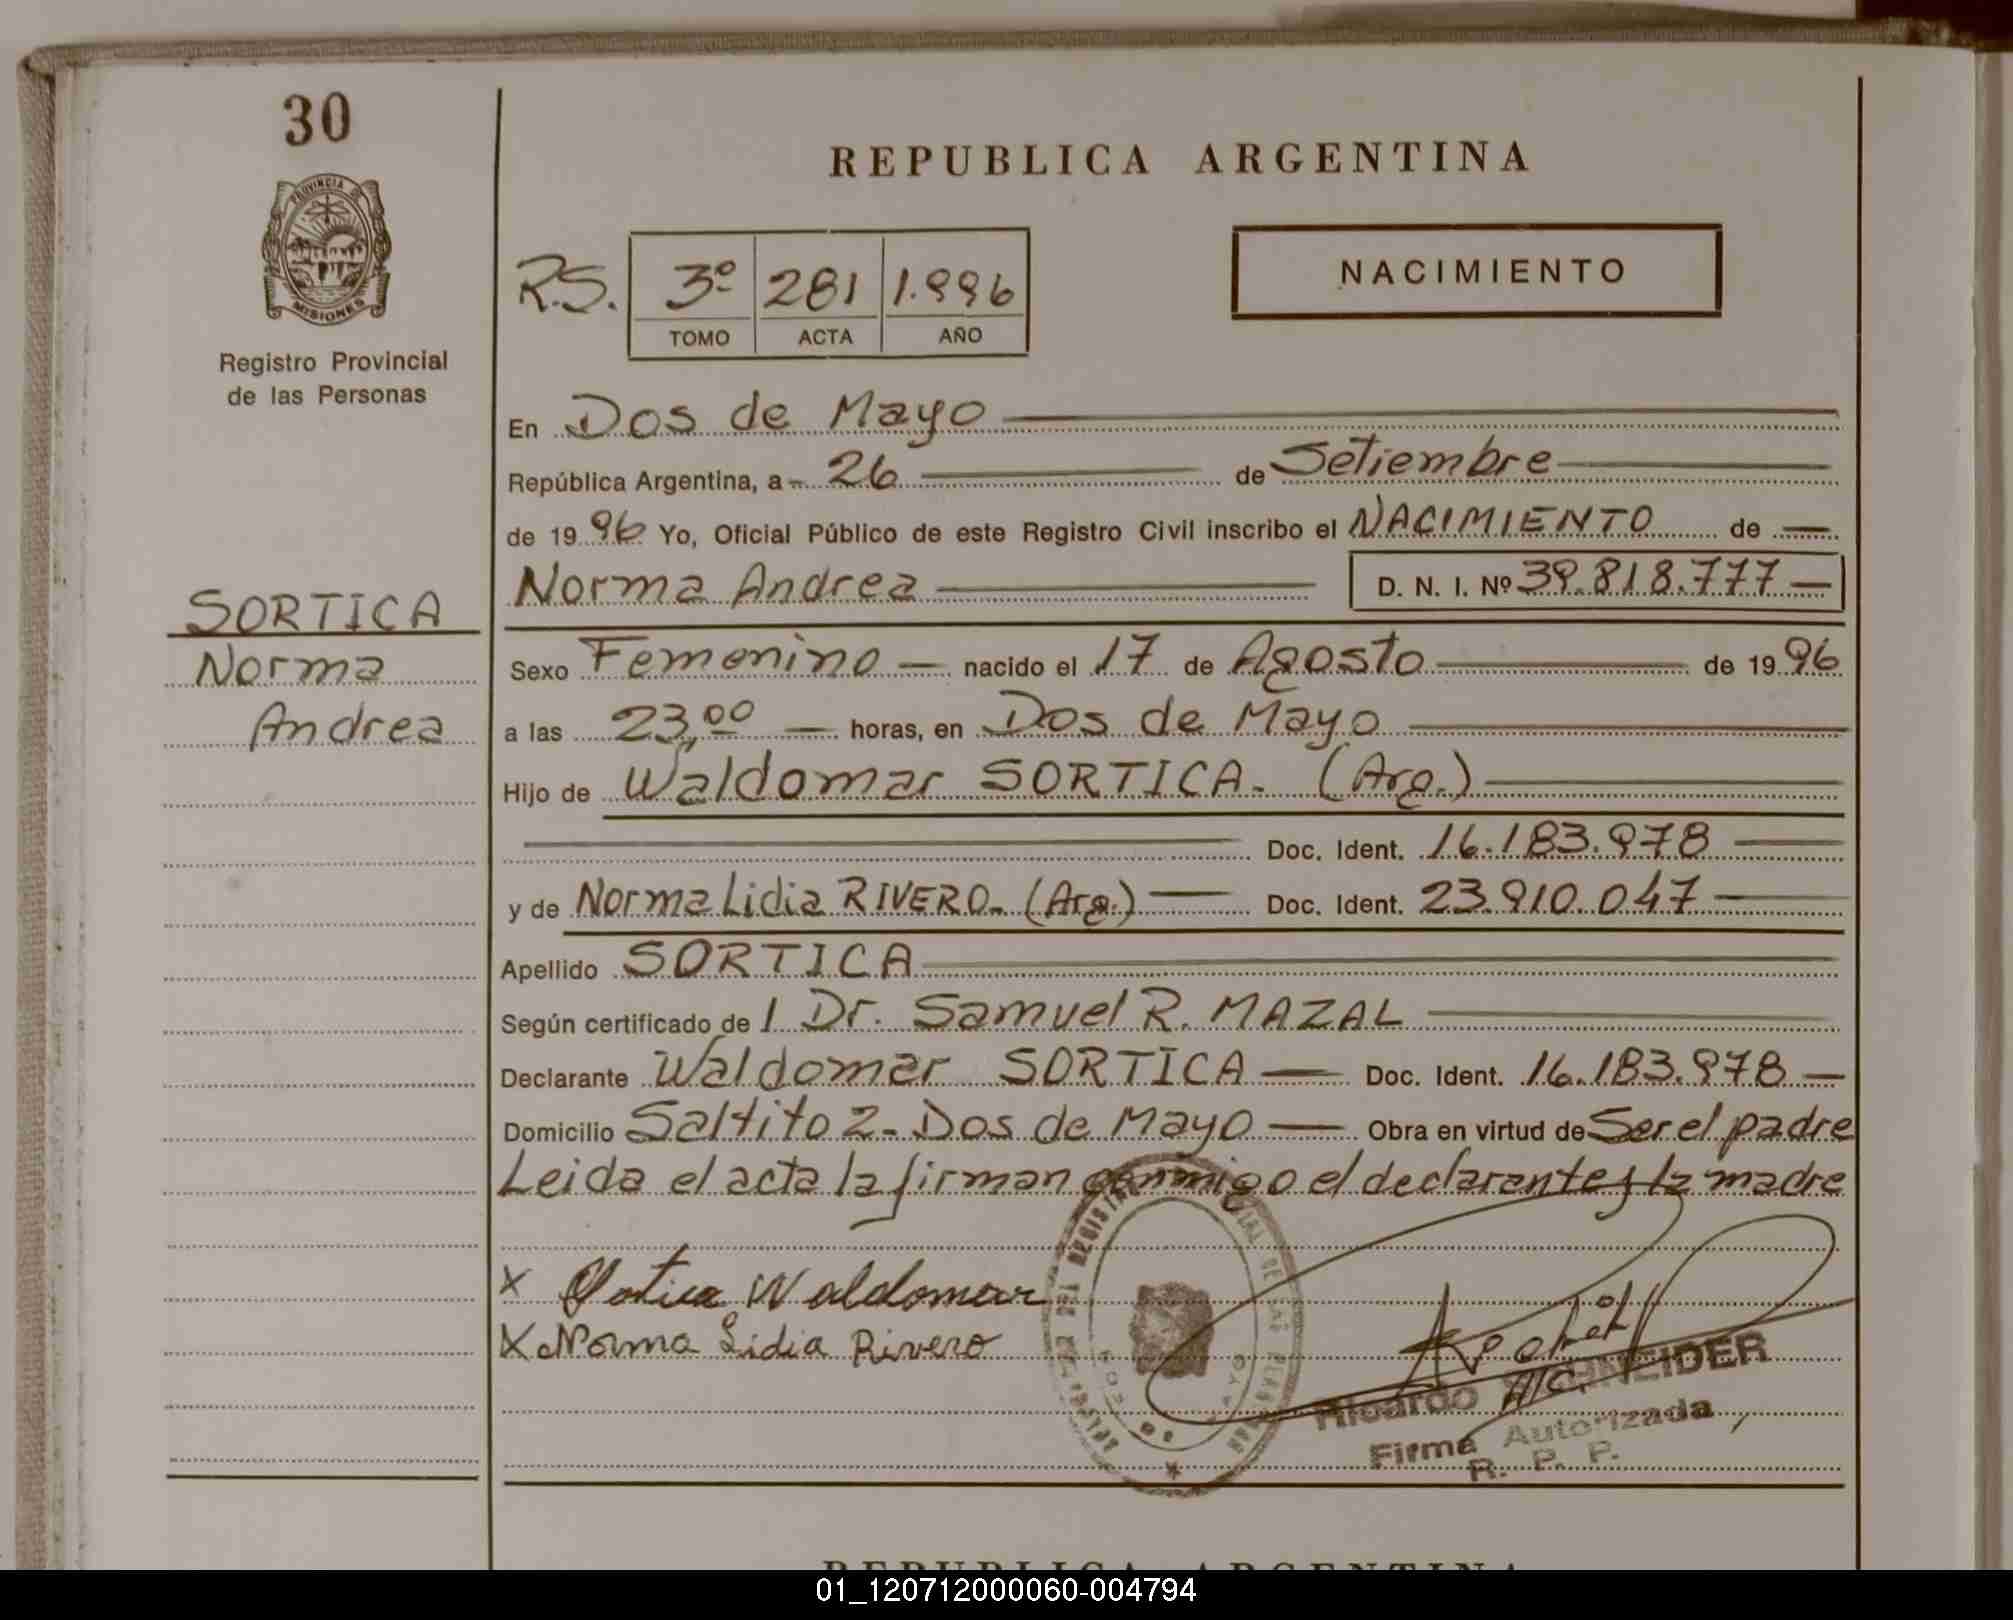 30
PROVINCIA DE
MISIONES
Registro Provincial
de las Personas
SORTICA
Norma
Andrea
REPUBLICA ARGENTINA
R.S. 3º 281 1.996
TOMO ACTA AÑO
NACIMIENTO
En Dos de Mayo
República Argentina, a 26 de Setiembre
de 1996 Yo, Oficial Público de este Registro Civil inscribo el NACIMIENTO de
Norma Andrea D. N. I. Nº 39.818.777
Sexo Femenino nacido el 17 de Agosto de 1996
a las 23,00 horas, en Dos de Mayo
Hijo de Waldomar SORTICA. (Arg.)
Doc. Ident. 16.183.978
y de Norma Lidia RIVERO. (Arg.) Doc. Ident. 23.910.047
Apellido SORTICA
Según certificado de l Dr. Samuel R. MAZAL
Declarante Waldomar SORTICA Doc. Ident. 16.183.978
Domicilio Saltito 2. Dos de Mayo Obra en virtud de Ser el padre
Leida el acta la firman conmigo el declarante y la madre
X Sortica Waldomar
X Norma Lidia Rivero
Ricardo SCHNEIDER
Firma Autorizada
R. P. P.
REPUBLICA ARGENTINA
01_120712000060-004794